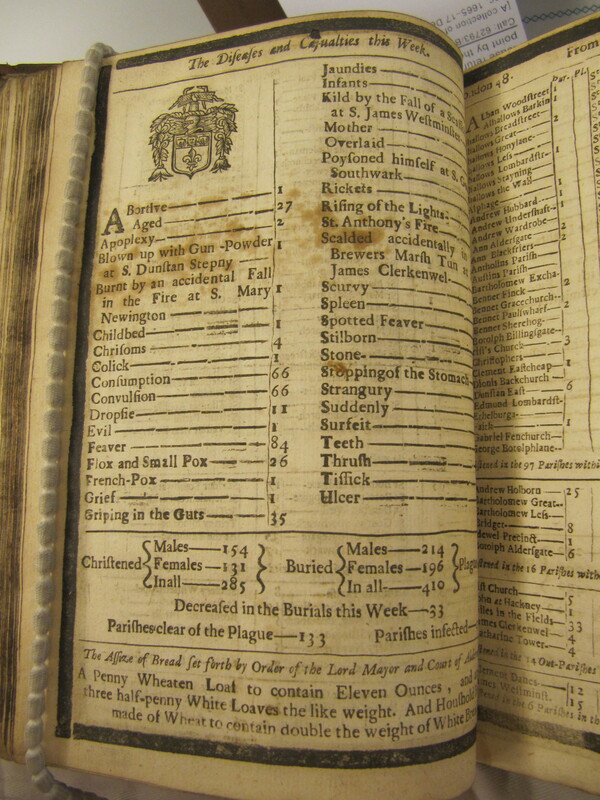 The Diseases and Casualties this Week.
Abortive — 1
Aged — 27
Apoplexy — 2
Blown up with Gun-Powder 1
at S. Dunstan Stepny
Burnt by an accidental Fall
in the Fire at S. Mary 1
Newington
Childbed — 1
Chrisoms — 4
Colick — 1
Consumption — 66
Convulsion — 66
Dropsie — 11
Evil — 1
Feaver — 84
Flox and Small Pox — 26
French-Pox — 1
Grief — 1
Griping in the Guts — 35
Jaundies
Infants
Kild by the Fall of a
at S. James Westminster
Mother
Overlaid
Poysoned himself at S.
Southwark
Rickets
Rising of the Lights
St. Anthony's Fire
Scalded accidentally
Brewers Marsh Tun at
James Clerkenwel
Scurvy
Spleen
Spotted Feaver
Stilborn
Stone
Stopping of the Stomach
Strangury
Suddenly
Surfeit
Teeth
Thrush
Tissick
Ulcer
Christened Males — 154 Females — 131 In all — 285
Buried Males — 214 Females — 196 In all — 410
Decreased in the Burials this Week — 33
Parishes clear of the Plague — 133 Parishes infected
The Assize of Bread set forth by Order of the Lord Mayor and Court of
A Penny Wheaten Loaf to contain Eleven Ounces, and
three half-penny White Loaves the like weight. And Houshold
made of Wheat to contain double the weight of White
From
Alban Woodstreet 1
Alhallows Barkin
hallows Breadstreet
hallows Great
hallows Honylane
hallows Less
hallows Lombardst
hallows Stayning
hallows the Wall
Alphage
Andrew Hubbard
Andrew Undershaft
Andrew Wardrobe
Ann Aldersgate
Ann Blackfriers
Bartholomew Excha
Bennet Finck
Bennet Gracechurch
Bennet Paulswharf
Bennet Sherehog
Botolph Billingsgate
Christophers
Clement Eastcheap
Dionis Backchurch
Dunstan East
Edmund Lombardst
Ethelburga
Faith
Gabriel Fenchurch
George Botolphlane
in the 97 Parishes
Andrew Holborn 25
Bartholomew Great
Bartholomew Less
Bridget 8
Bridewel Precinct 1
Botolph Aldersgate 6
in the 16 Parishes
Christ Church 5
John at Hackney 1
Giles in the Fields 33
James Clerkenwel 4
Katharine Tower 4
in the 12 Out-Parishes
Clement Danes 12
James Westminst. 15
in the 5 Parishes